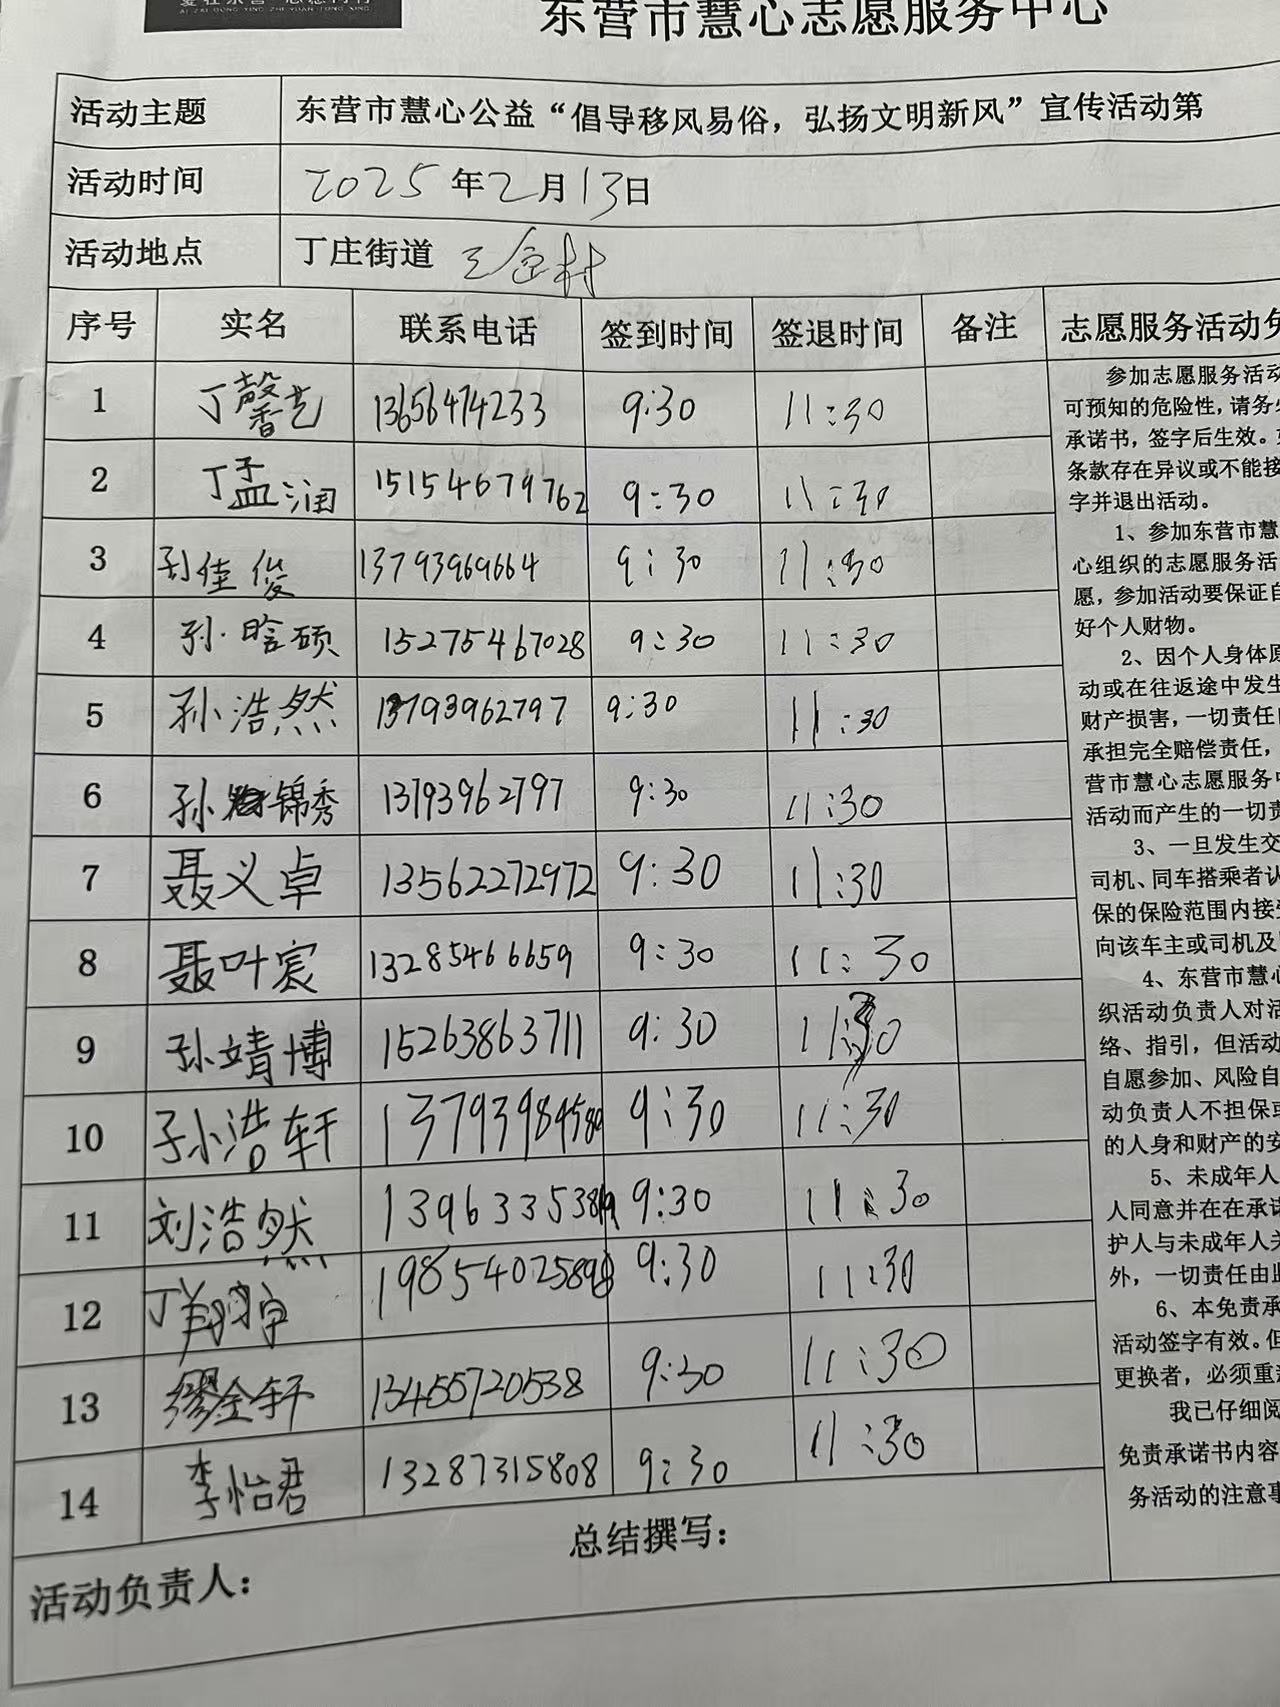 东营市慧心志愿服务中心
活动主题 东营市慧心公益“倡导移风易俗，弘扬文明新风”宣传活动第
活动时间 2025年2月13日
活动地点 丁庄街道 王金村
序号 实名 联系电话 签到时间 签退时间 备注
1 丁馨艺 13656474233 9:30 11:30
2 丁孟润 15154679762 9:30 11:30
3 孙佳俊 13793969664 9:30 11:30
4 孙晗硕 15275467028 9:30 11:30
5 孙浩然 13793962797 9:30 11:30
6 孙锦秀 13793962797 9:30 11:30
7 聂义卓 13562272972 9:30 11:30
8 聂叶宸 13285466659 9:30 11:30
9 孙靖博 15263863711 9:30 11:30
10 孙浩轩 9:30 11:30
11 刘浩然 9:30 11:30
12 丁翔宇 9:30 11:30
13 缪金轩 13455720538 9:30 11:30
14 李怡君 13287315808 9:30 11:30
总结撰写：
活动负责人：
志愿服务活动免
参加志愿服务活动
可预知的危险性，请务必
承诺书，签字后生效。
条款存在异议或不能接
字并退出活动。
1、参加东营市慧
心组织的志愿服务活
愿，参加活动要保证自
好个人财物。
2、因个人身体原
动或在往返途中发生
财产损害，一切责任由
承担完全赔偿责任，
营市慧心志愿服务中
活动而产生的一切责
3、一旦发生交
司机、同车搭乘者认
保的保险范围内接受
向该车主或司机及
4、东营市慧心
织活动负责人对活
络、指引，但活动
自愿参加、风险自
动负责人不担保或
的人身和财产的安
5、未成年人
人同意并在在承诺
护人与未成年人关
外，一切责任由监
6、本免责承
活动签字有效。但
更换者，必须重新
我已仔细阅
免责承诺书内容
务活动的注意事